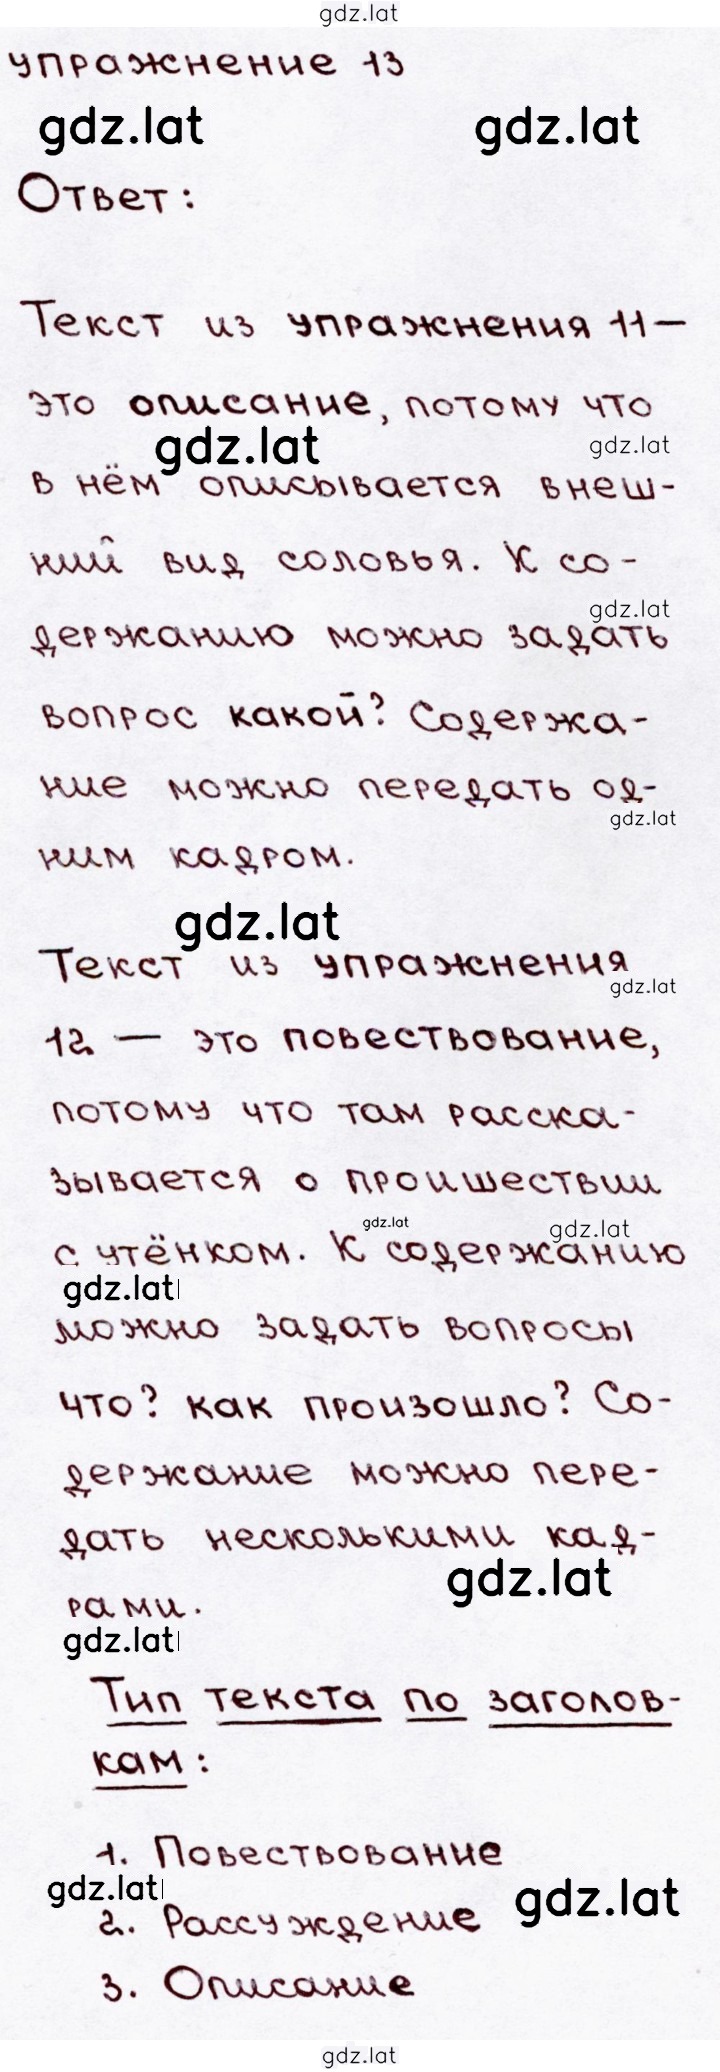 gdz.lat
упражнение 13
gdz.lat gdz.lat
Ответ:
Текст из упражнения 11 –
это описание, потому что
gdz.lat gdz.lat
в нём описывается внеш-
ний вид соловья. К со-
gdz.lat
держанию можно задать
вопрос какой? Содержа-
ние можно передать од-
gdz.lat
ним кадром.
gdz.lat
Текст из упражнения
gdz.lat
12 – это повествование,
потому что там расска-
зывается о происшествии
gdz.lat gdz.lat
с утёнком. К содержанию
gdz.lat
можно задать вопросы
что? как произошло? Со-
держание можно пере-
дать несколькими кад-
gdz.lat
рами.
gdz.lat
Тип текста по заголов-
кам:
1. Повествование
gdz.lat gdz.lat
2. Рассуждение
3. Описание
gdz.lat